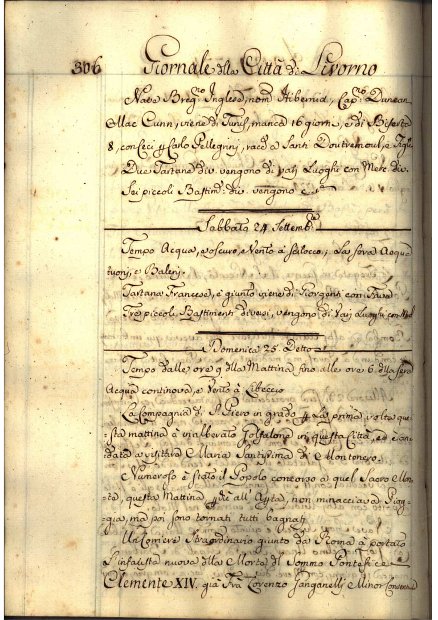 306 Giornale della Città di Livorno
Nave Breg.no Inglese, nom. Hibernia, Cap.no Duncan
Mac Cunn, viene di Tunis, manca 16 giorni, e di Biserta
8, con Ceci p Carlo Pellegrini, racd. a Santi Doutremoul, e Figli
Due Tartane div. vengono di varj Luoghi con Merc. div.
Sei piccoli Bastim.ti div. vengono
Sabbato 24 Settemb.e
Tempo Acqua, e oscuro, e Vento à Scilocco, e La sera Acqua
tuoni, e Baleni.
Tartana Francese, è giunto viene di Giorgenti con Fava
Tre piccoli Bastimenti diversi, vengono di Varj Luoghi con
Domenica 25 Detto
Tempo dalle ore 9 della Mattina fino alle ore 6 della sera
Acqua continova, e Vento à Libeccio
La Compagnia di S. Piero in grado p La prima volta que-
sta mattina à inalberato Gonfalone in questa Città, ed è an-
data a visitare Maria Santissima di Montenero.
Numeroso è stato il Popolo concorso a quel Sacro Mon-
te, questa Mattina, non minacciava Piog-
gia, mà poi sono tornati tutti bagnati.
Un Corriere Straordinario giunto da Roma à portato
L'infausta nuova della Morte di Sommo Pontefice
Clemente XIV. già Fra Lorenzo Ganganelli Minor Conventuale